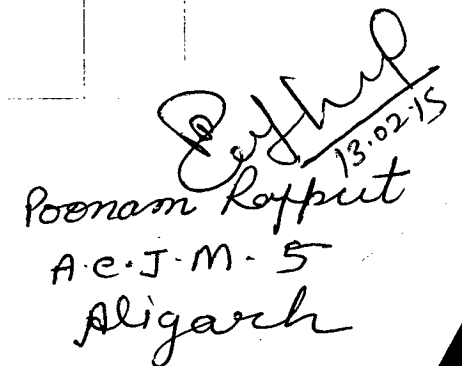 13.02.15
Poonam Rajput
A.C.J.M. 5
Aligarh